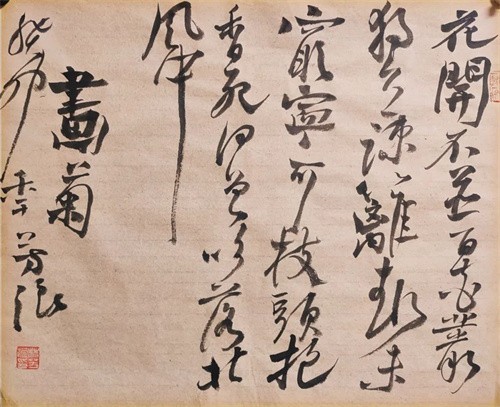 花開不並百花叢
獨立疎籬趣未
窮寧可枝頭抱
香死何曾吹落北
風中
畫菊
癸卯